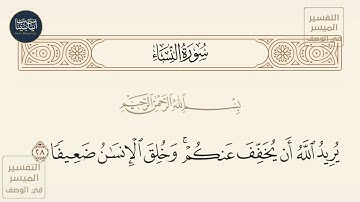 التفسير
الميسر
في الوصف
سُورَةُ النِّسَاءِ
بِسْمِ اللَّهِ الرَّحْمَنِ الرَّحِيمِ
يُرِيدُ ٱللَّهُ أَن يُخَفِّفَ عَنكُمْ ۚ وَخُلِقَ ٱلْإِنسَٰنُ ضَعِيفًا ٢٨
التفسير
الميسر
في الوصف